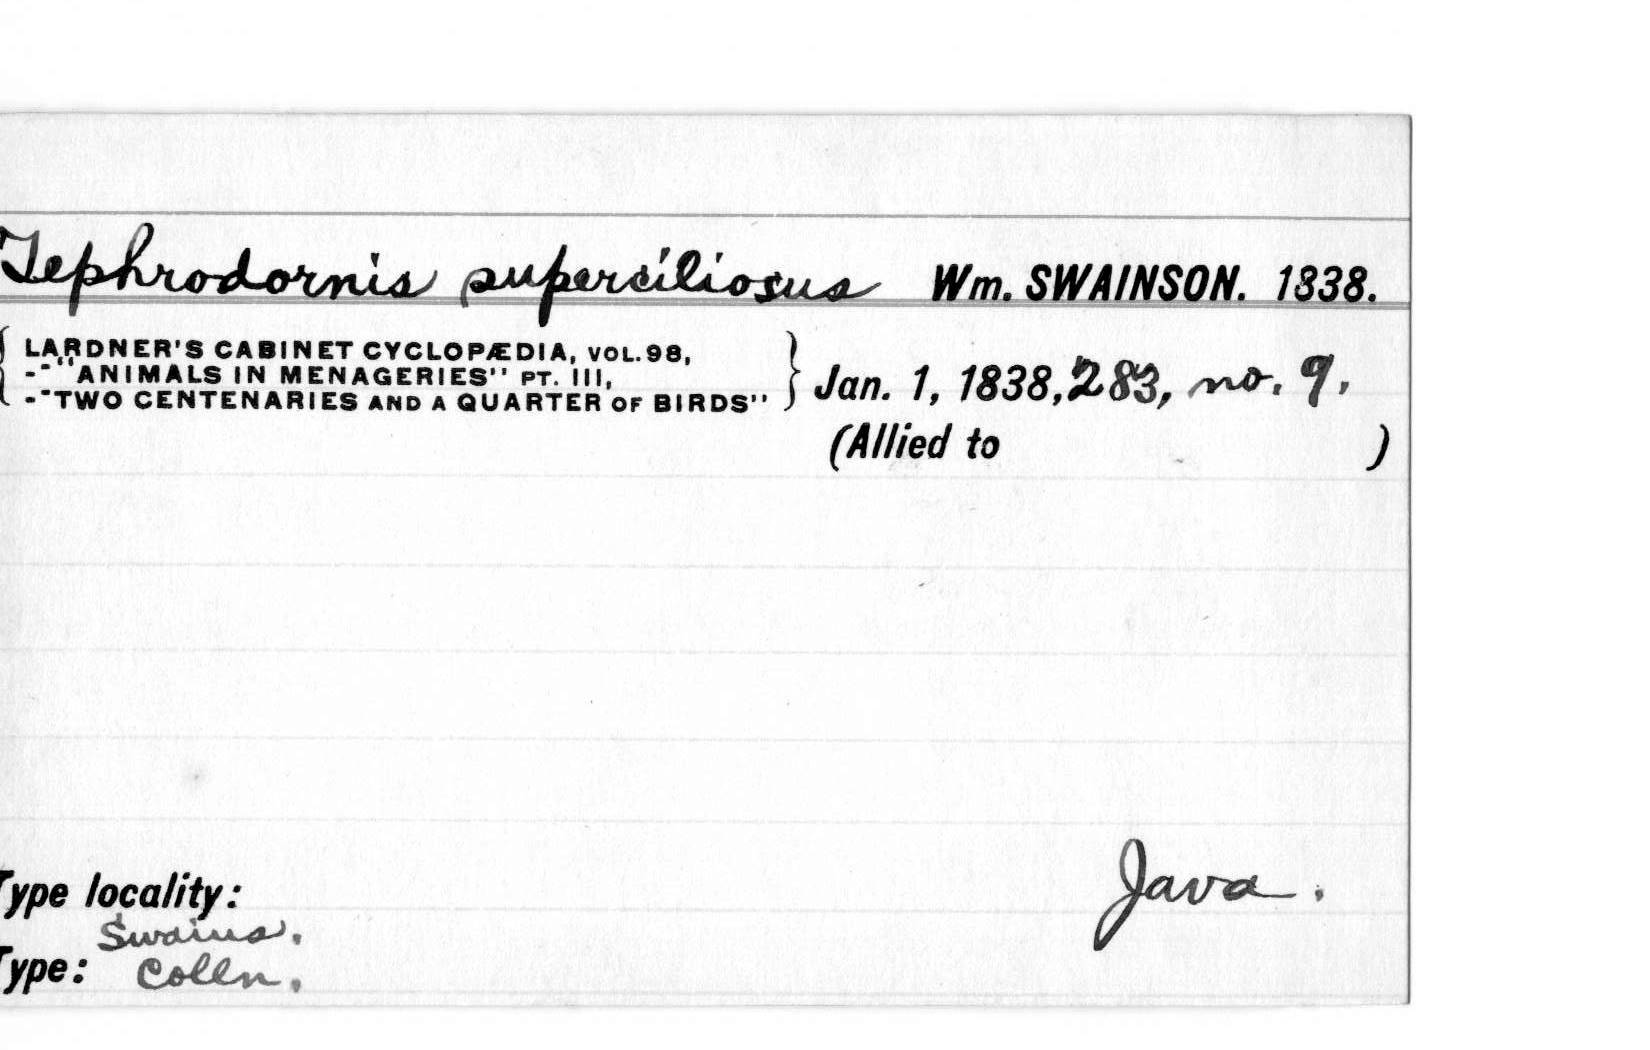 Tephrodornis superciliosus Wm. SWAINSON. 1838.
{ LARDNER'S CABINET CYCLOPÆDIA, VOL.98,
--"ANIMALS IN MENAGERIES" PT. III,
--"TWO CENTENARIES AND A QUARTER OF BIRDS" } Jan. 1, 1838, 283, no. 9.
(Allied to )
Java.
Type locality:
Swains.
Type: Colln.